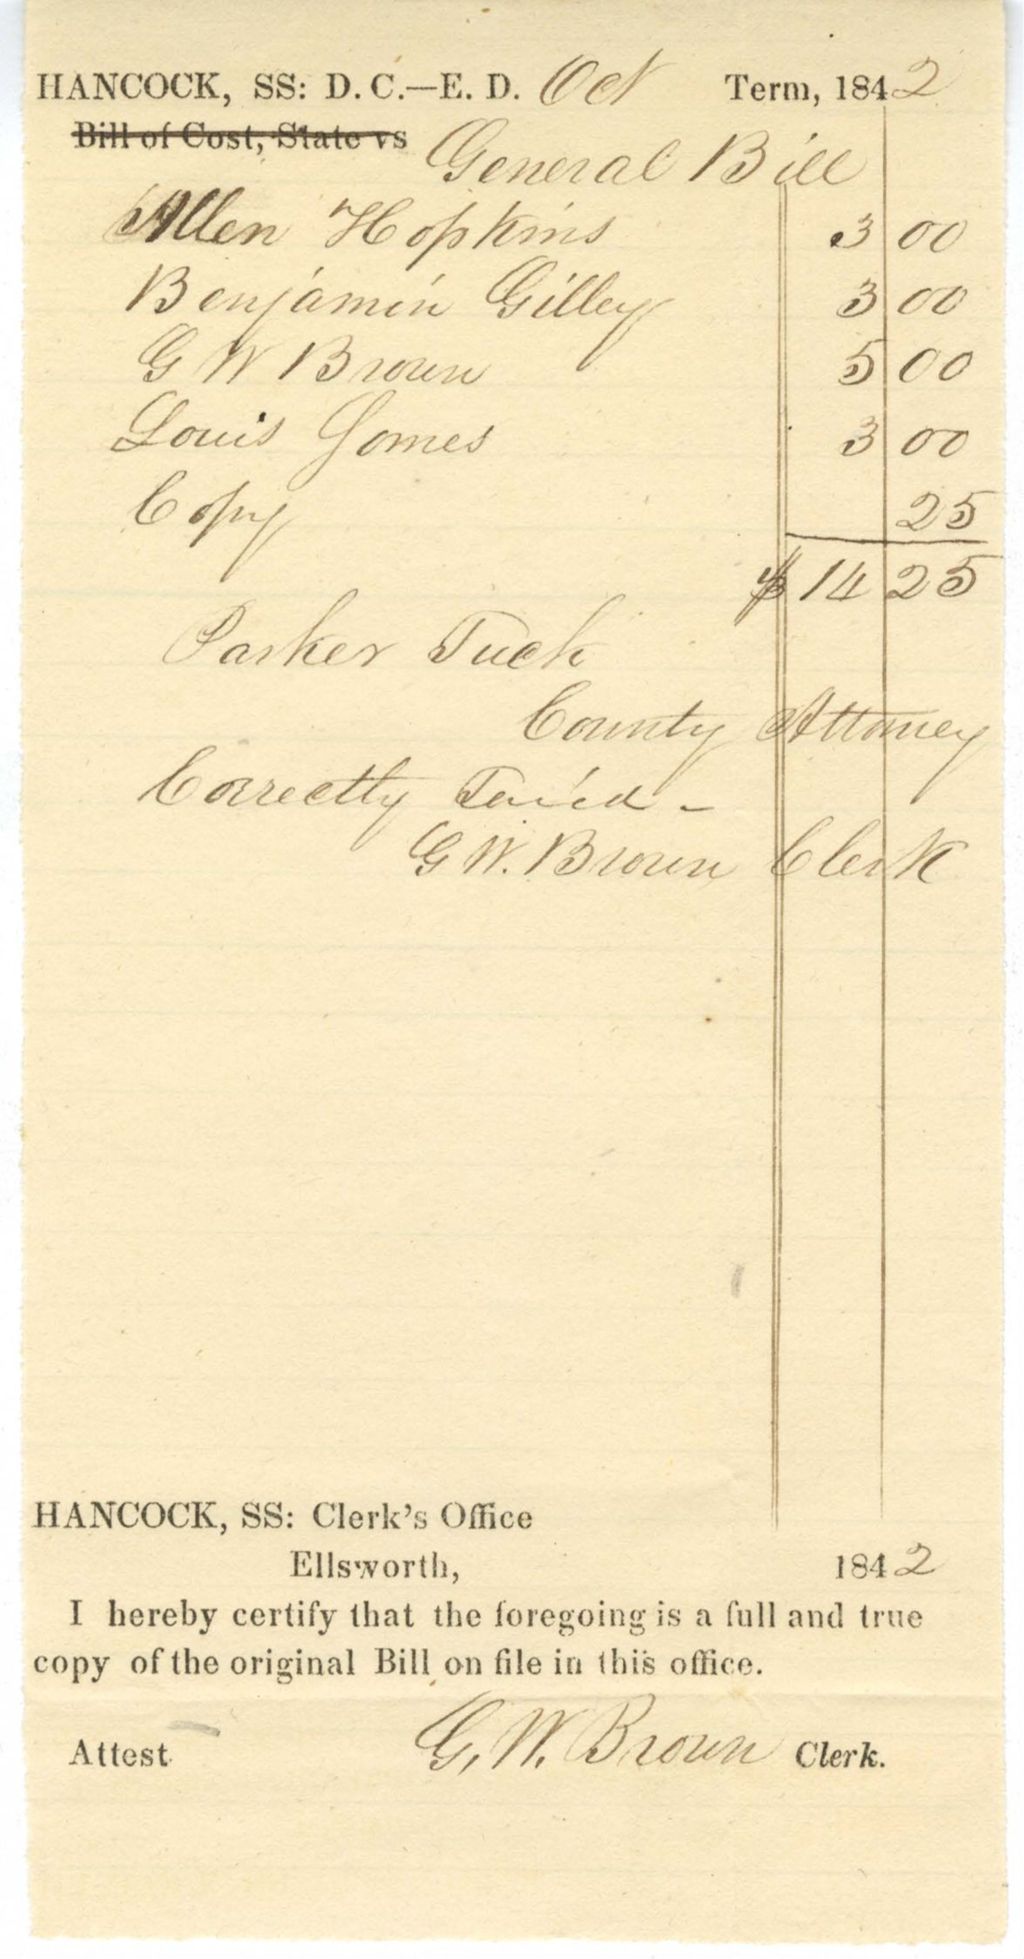 HANCOCK, SS: D. C.—E. D. Oct Term, 1842
Bill of Cost, State vs General Bill
Allen Hopkins 3 00
Benjamin Gilley 3 00
G W Brown 5 00
Louis Jomes 3 00
Copy 25
$14 25
Parker Tuck
County Attorney
Correctly Taxed -
G W. Brown Clerk
HANCOCK, SS: Clerk's Office
Ellsworth, 1842
I hereby certify that the foregoing is a full and true
copy of the original Bill on file in this office.
Attest G. W. Brown Clerk.